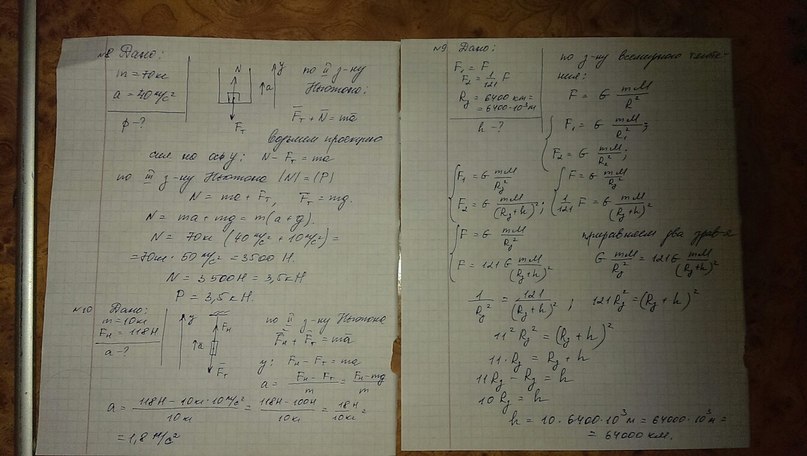 №8 Дано:
m = 70кг
a = 40 м/с²
p - ?
N
a
y
F_т
по II з-ну
Ньютона:
F̅_т + N̅ = ma̅
Возьмем проекцию
сил на ось y: N - F_т = ma
по III з-ну Ньютона |N| = |P|
N = ma + F_т, F_т = mg.
N = ma + mg = m(a + g).
N = 70кг (40 м/с² + 10 м/с²) =
= 70кг · 50 м/с² = 3500 Н.
N = 3500Н = 3,5кН
P = 3,5кН.
№10 Дано:
m = 10кг
F_н = 118Н
a - ?
y
a
F̅_н
F̅_т
по II з-ну Ньютона
F̅_н + F̅_т = ma̅
y: F_н - F_т = ma
a = (F_н - F_т)/m = (F_н - mg)/m
a = (118Н - 10кг · 10м/с²)/10кг = (118Н - 100Н)/10кг = 18Н/10кг =
= 1,8 м/с²
№9 Дано:
F₁ = F
F₂ = 1/121 F
R_з = 6400 км =
= 6400·10³м
h - ?
по з-ну всемирного тяготе-
ния:
F = G mM/R²
F₁ = G mM/R₁²;
F₂ = G mM/R₂²;
{ F₁ = G mM/R_з²
F₂ = G mM/(R_з + h)²;
{ F = G mM/R_з²
1/121 F = G mM/(R_з + h)²
{ F = G mM/R_з²
F = 121 G mM/(R_з + h)²
приравняем два урав-я
G mM/R_з² = 121G mM/(R_з + h)²
1/R_з² = 121/(R_з + h)²; 121R_з² = (R_з + h)²
11² R_з² = (R_з + h)²
11·R_з = R_з + h
11R_з - R_з = h
10 R_з = h
h = 10 · 6400·10³м = 64000·10³м =
= 64000 км.